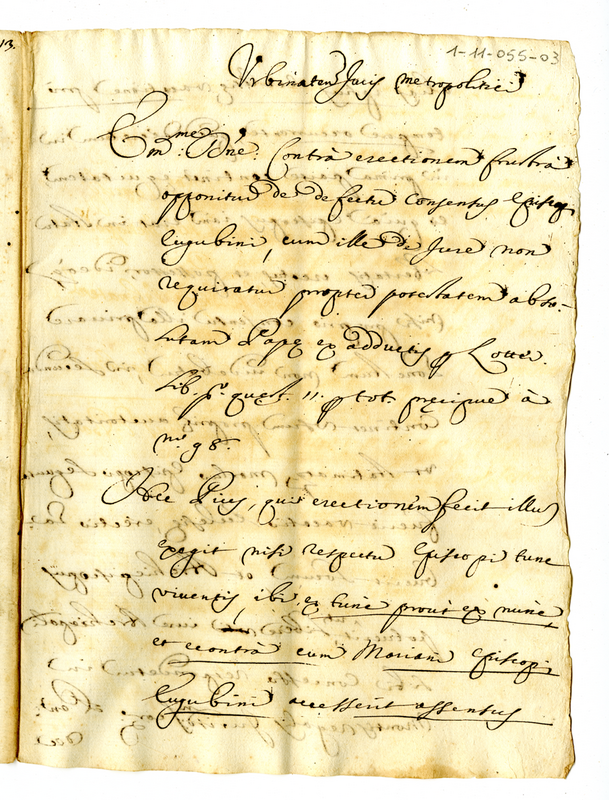 13.
1-11-055-03
Urbinaten Juris metropolitici
Em.me Dne: Contrà erectionem frustrà
opponitur de defectu Consensus Episcopi
Eugubini, cum ille de Jure non
requiratur propter potestatem abso-
lutam Papę ex adductis p Lotter.
lib. p.o quęst. 11. p tot. pręcipue à
n.o 98.
Nec Pius, qui erectionem fecit illum
exegit nisi respectu Episcopi tunc
viventis, ibi ex tunc prout ex nunc,
et econtrà cum Mariani Episcopi
Eugubini accesserit assensus